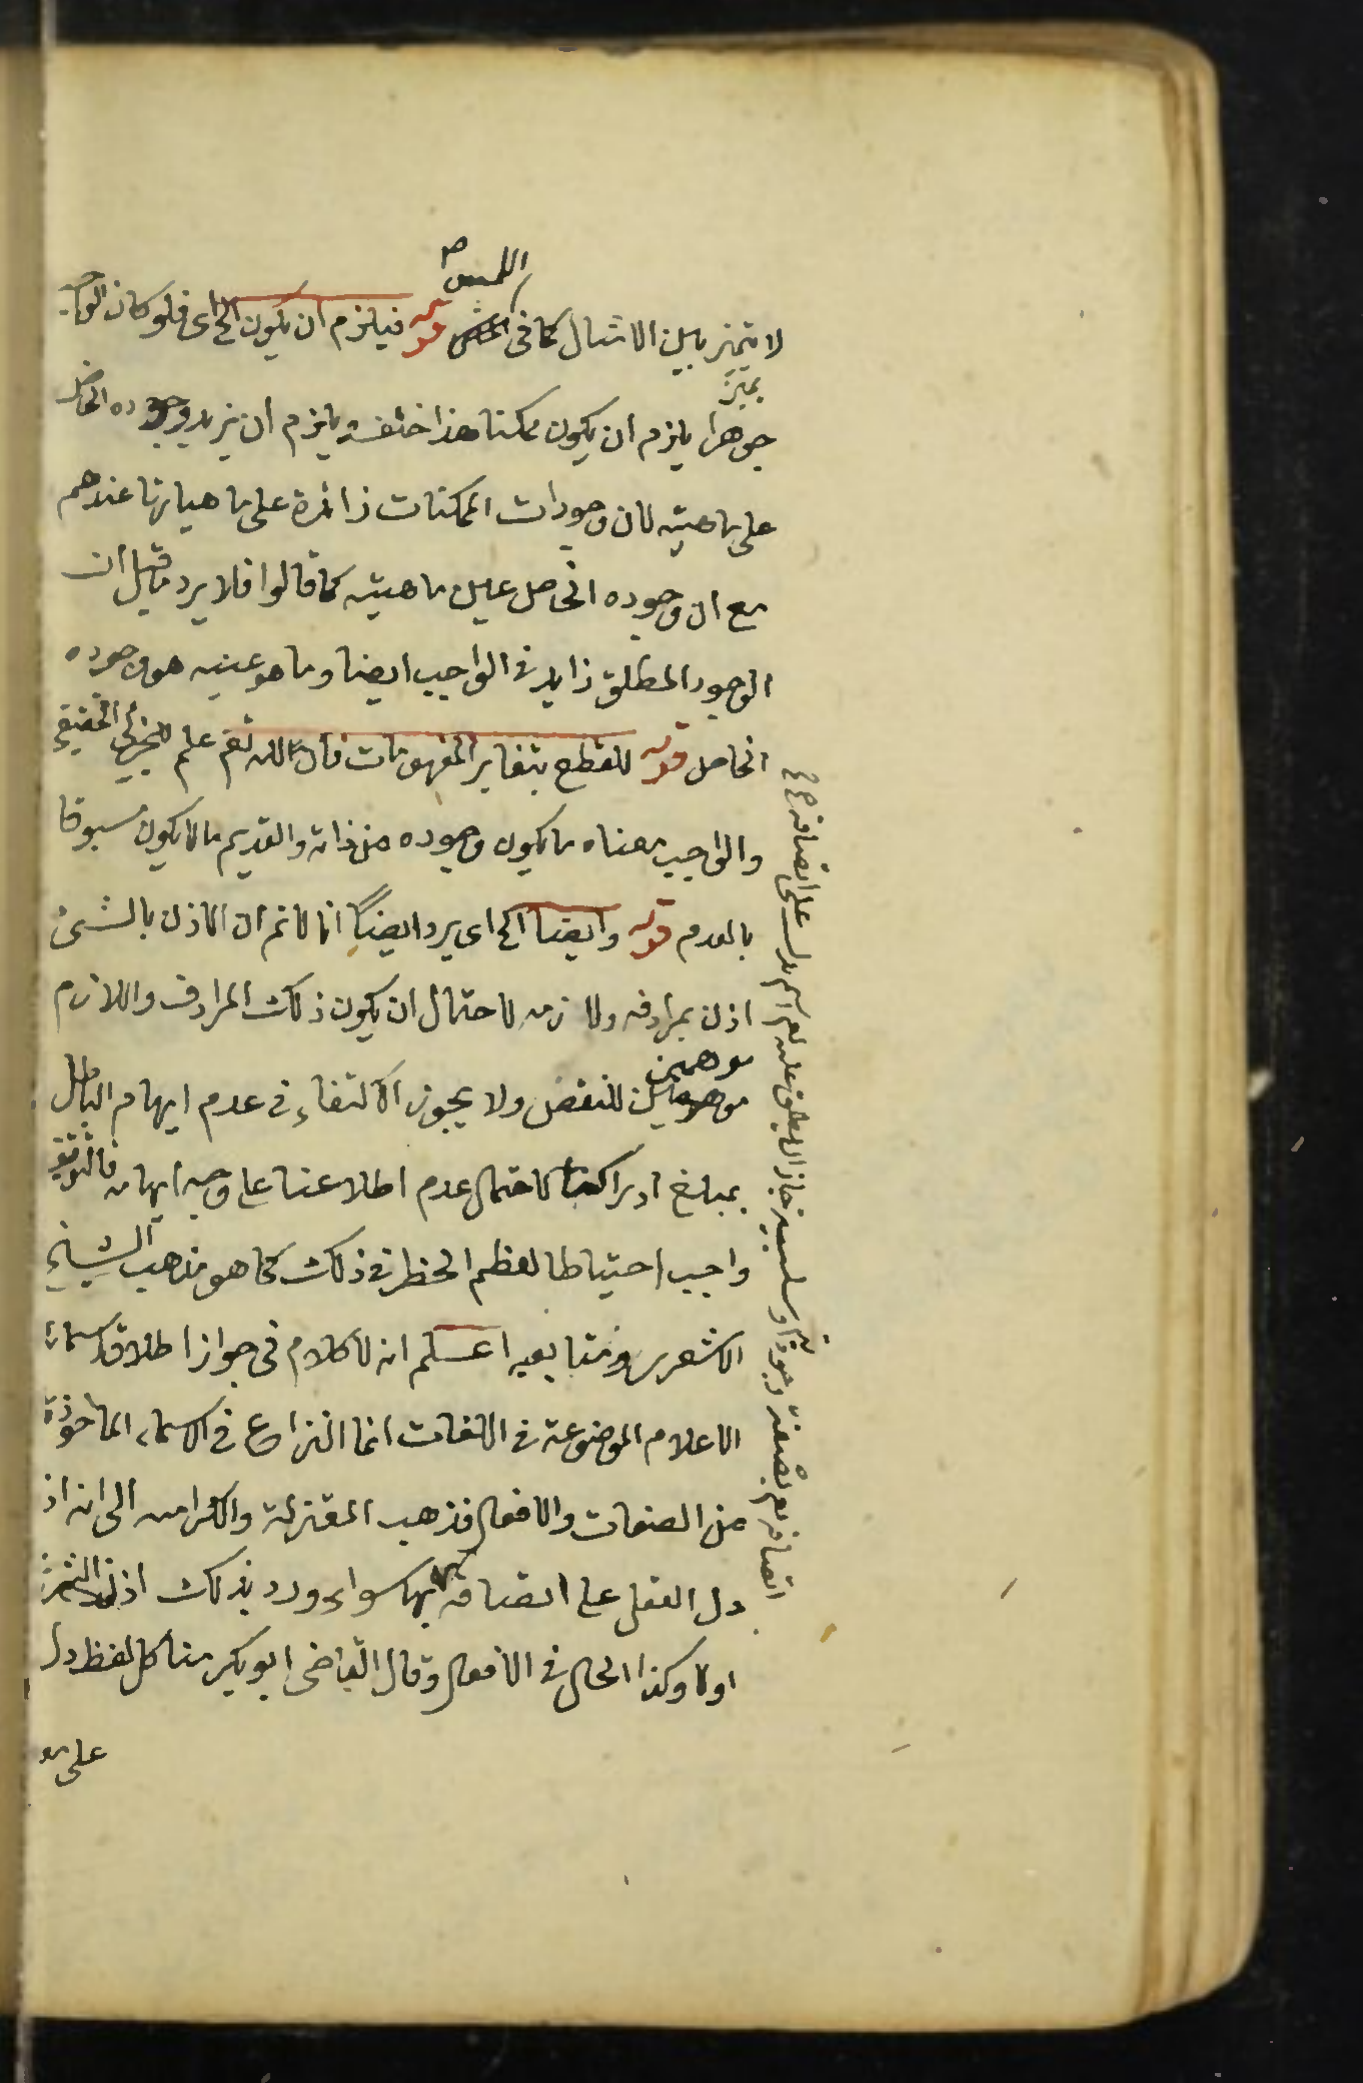 اللمس صح
لا يتميز بين الامثال كما فى قوله فيلزم ان يكون الخ اى فلو كان الواجب
يميز
جوهرا يلزم ان يكون ممكنا هذا خلف ويلزم ان يزيد وجوده الخاص
على ماهيته لان وجودات الممكنات زائدة على ماهياتها عندهم
مع ان وجوده الخاص عين ماهيته كما قالوا فلا يرد ما قيل ان
الوجود المطلق زايد فى الواجب ايضا وما هو عينه هو وجوده
الخاص قوله للقطع بتغاير المفهومات فان الله تعم علم للجزئى الحقيقى
والواجب معناه ما يكون وجوده من ذاته والقديم ما لا يكون مسبوقا
بالعدم قوله وايضا الخ اى يرد ايضا انا لا نم ان الاذن بالشئ
اذن بمرادفه ولازمه لاحتمال ان يكون ذلك المرادف واللازم
موهمين
للنقض ولا يجوز الاكتفاء فى عدم ايهام الباطل
بمبلغ ادراكنا لاحتمال عدم اطلاعنا على وجه ايهامه فالتوقيف
واجب احتياطا لعظم الخطر فى ذلك كما هو مذهب الشيخ
الاشعرى ومتابعيه اعلم انه لا كلام فى جواز اطلاق اسمائه
الاعلام الموضوعة فى اللغات انما النزاع فى الاسماء الماخوذة
من الصفات والافعال فذهب المعتزلة والكرامية الى انه اذا
دل العقل على اتصافه بها سواء ورد بذلك اذن الشرع
اولا وكذا الحال فى الافعال وقال القاضى ابو بكر منا كل لفظ دل
على
اتصافه تعم بصفة وجودية او سلبية جاز ان يطلق عليه تعم اسم يدل على اتصافه